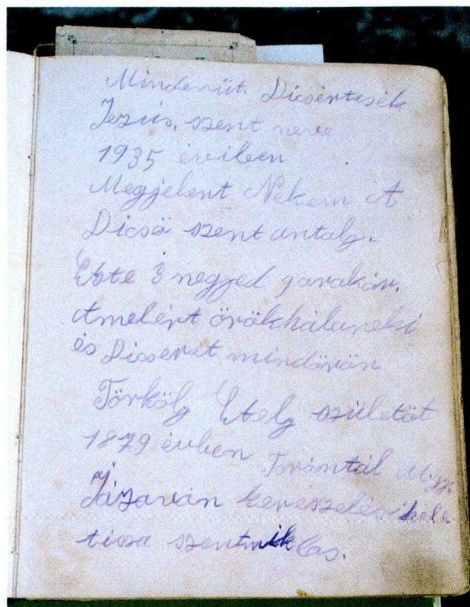 Mindenüt. Dicsértesék
Jezús. szent neve
1935 éviben
Megjelent Nekem A
Dicsö szent antaly.
Este 3 negyed
Amelért örökháláneki
és Disseret mindörön
Törköly Etely születöt
1879 évben Torontál
kereszelési
tisza szentmiklos.